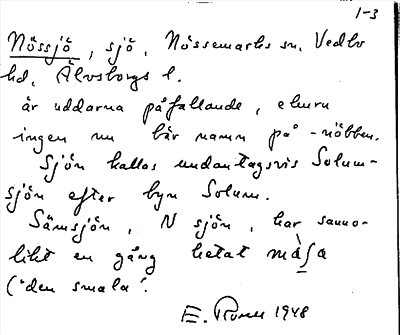 1-3
Nössjö, sjö, Nössemarks sn, Vedbo
hd, Älvsborgs l.
är uddarna påfallande, ehuru
ingen nu bär namn på -nöbben.
Sjön kallas undantagsvis Solum-
sjön efter byn Solum.
Sämsjön, N sjön, har sanno-
likt en gång hetat mása
('den smala'.
E. 1948